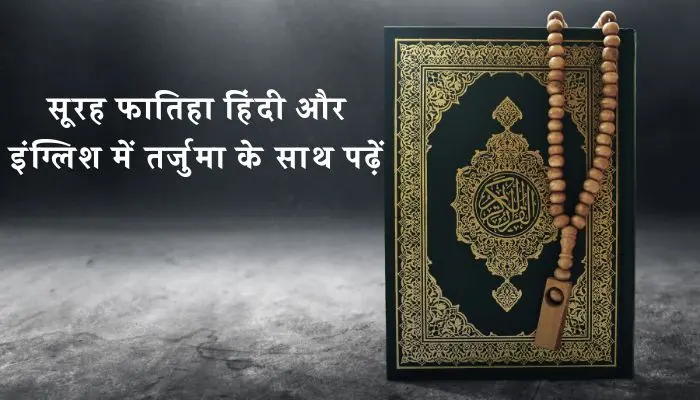 सूरह फातिहा हिंदी और
इंग्लिश में तर्जुमा के साथ पढ़ें
القرآن الكريم